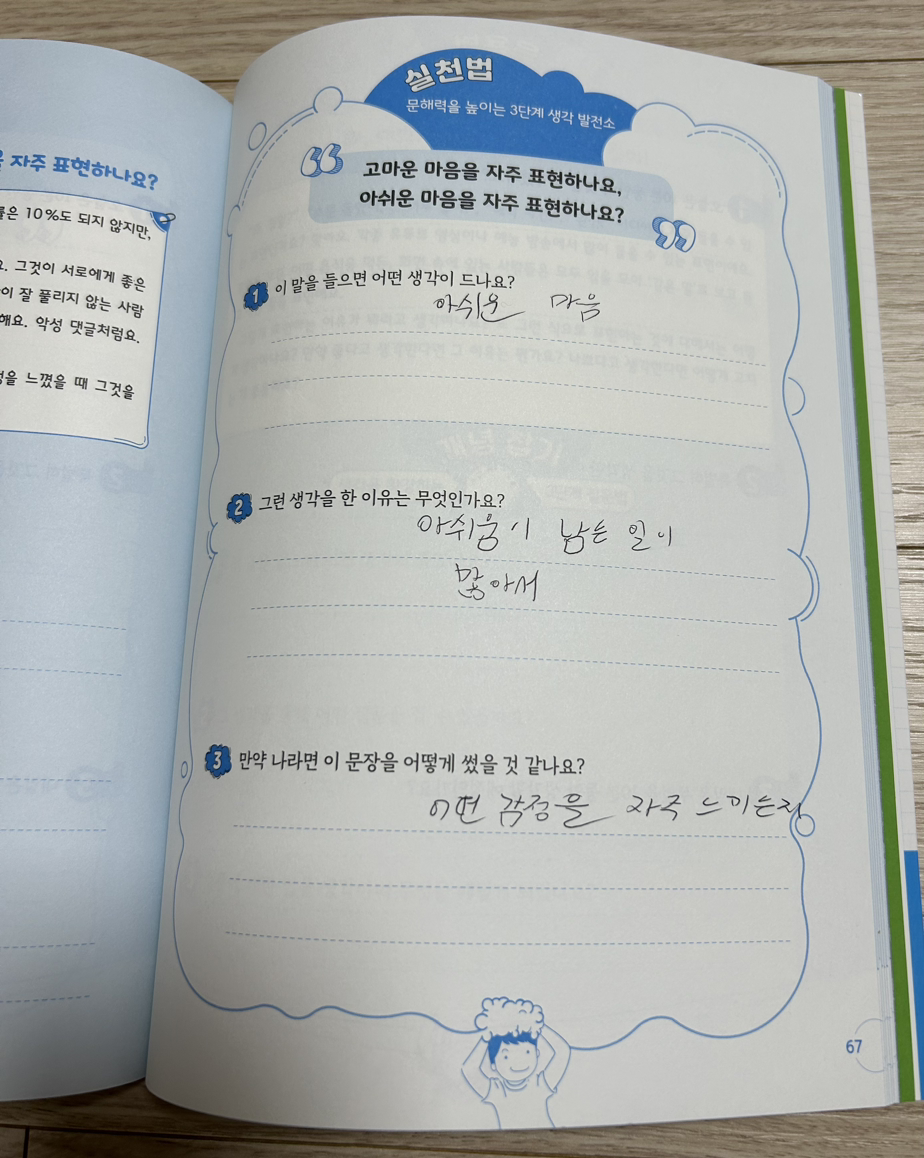 을 자주 표현하나요?
률은 10%도 되지 않지만,
요. 그것이 서로에게 좋은
이 잘 풀리지 않는 사람
해요. 악성 댓글처럼요.
정을 느꼈을 때 그것을
실천법
문해력을 높이는 3단계 생각 발전소
고마운 마음을 자주 표현하나요,
아쉬운 마음을 자주 표현하나요?
1 이 말을 들으면 어떤 생각이 드나요?
아쉬운 마음
2 그런 생각을 한 이유는 무엇인가요?
아쉬움이 남는 일이
많아서
3 만약 나라면 이 문장을 어떻게 썼을 것 같나요?
어떤 감정을 자주 느끼는지
67